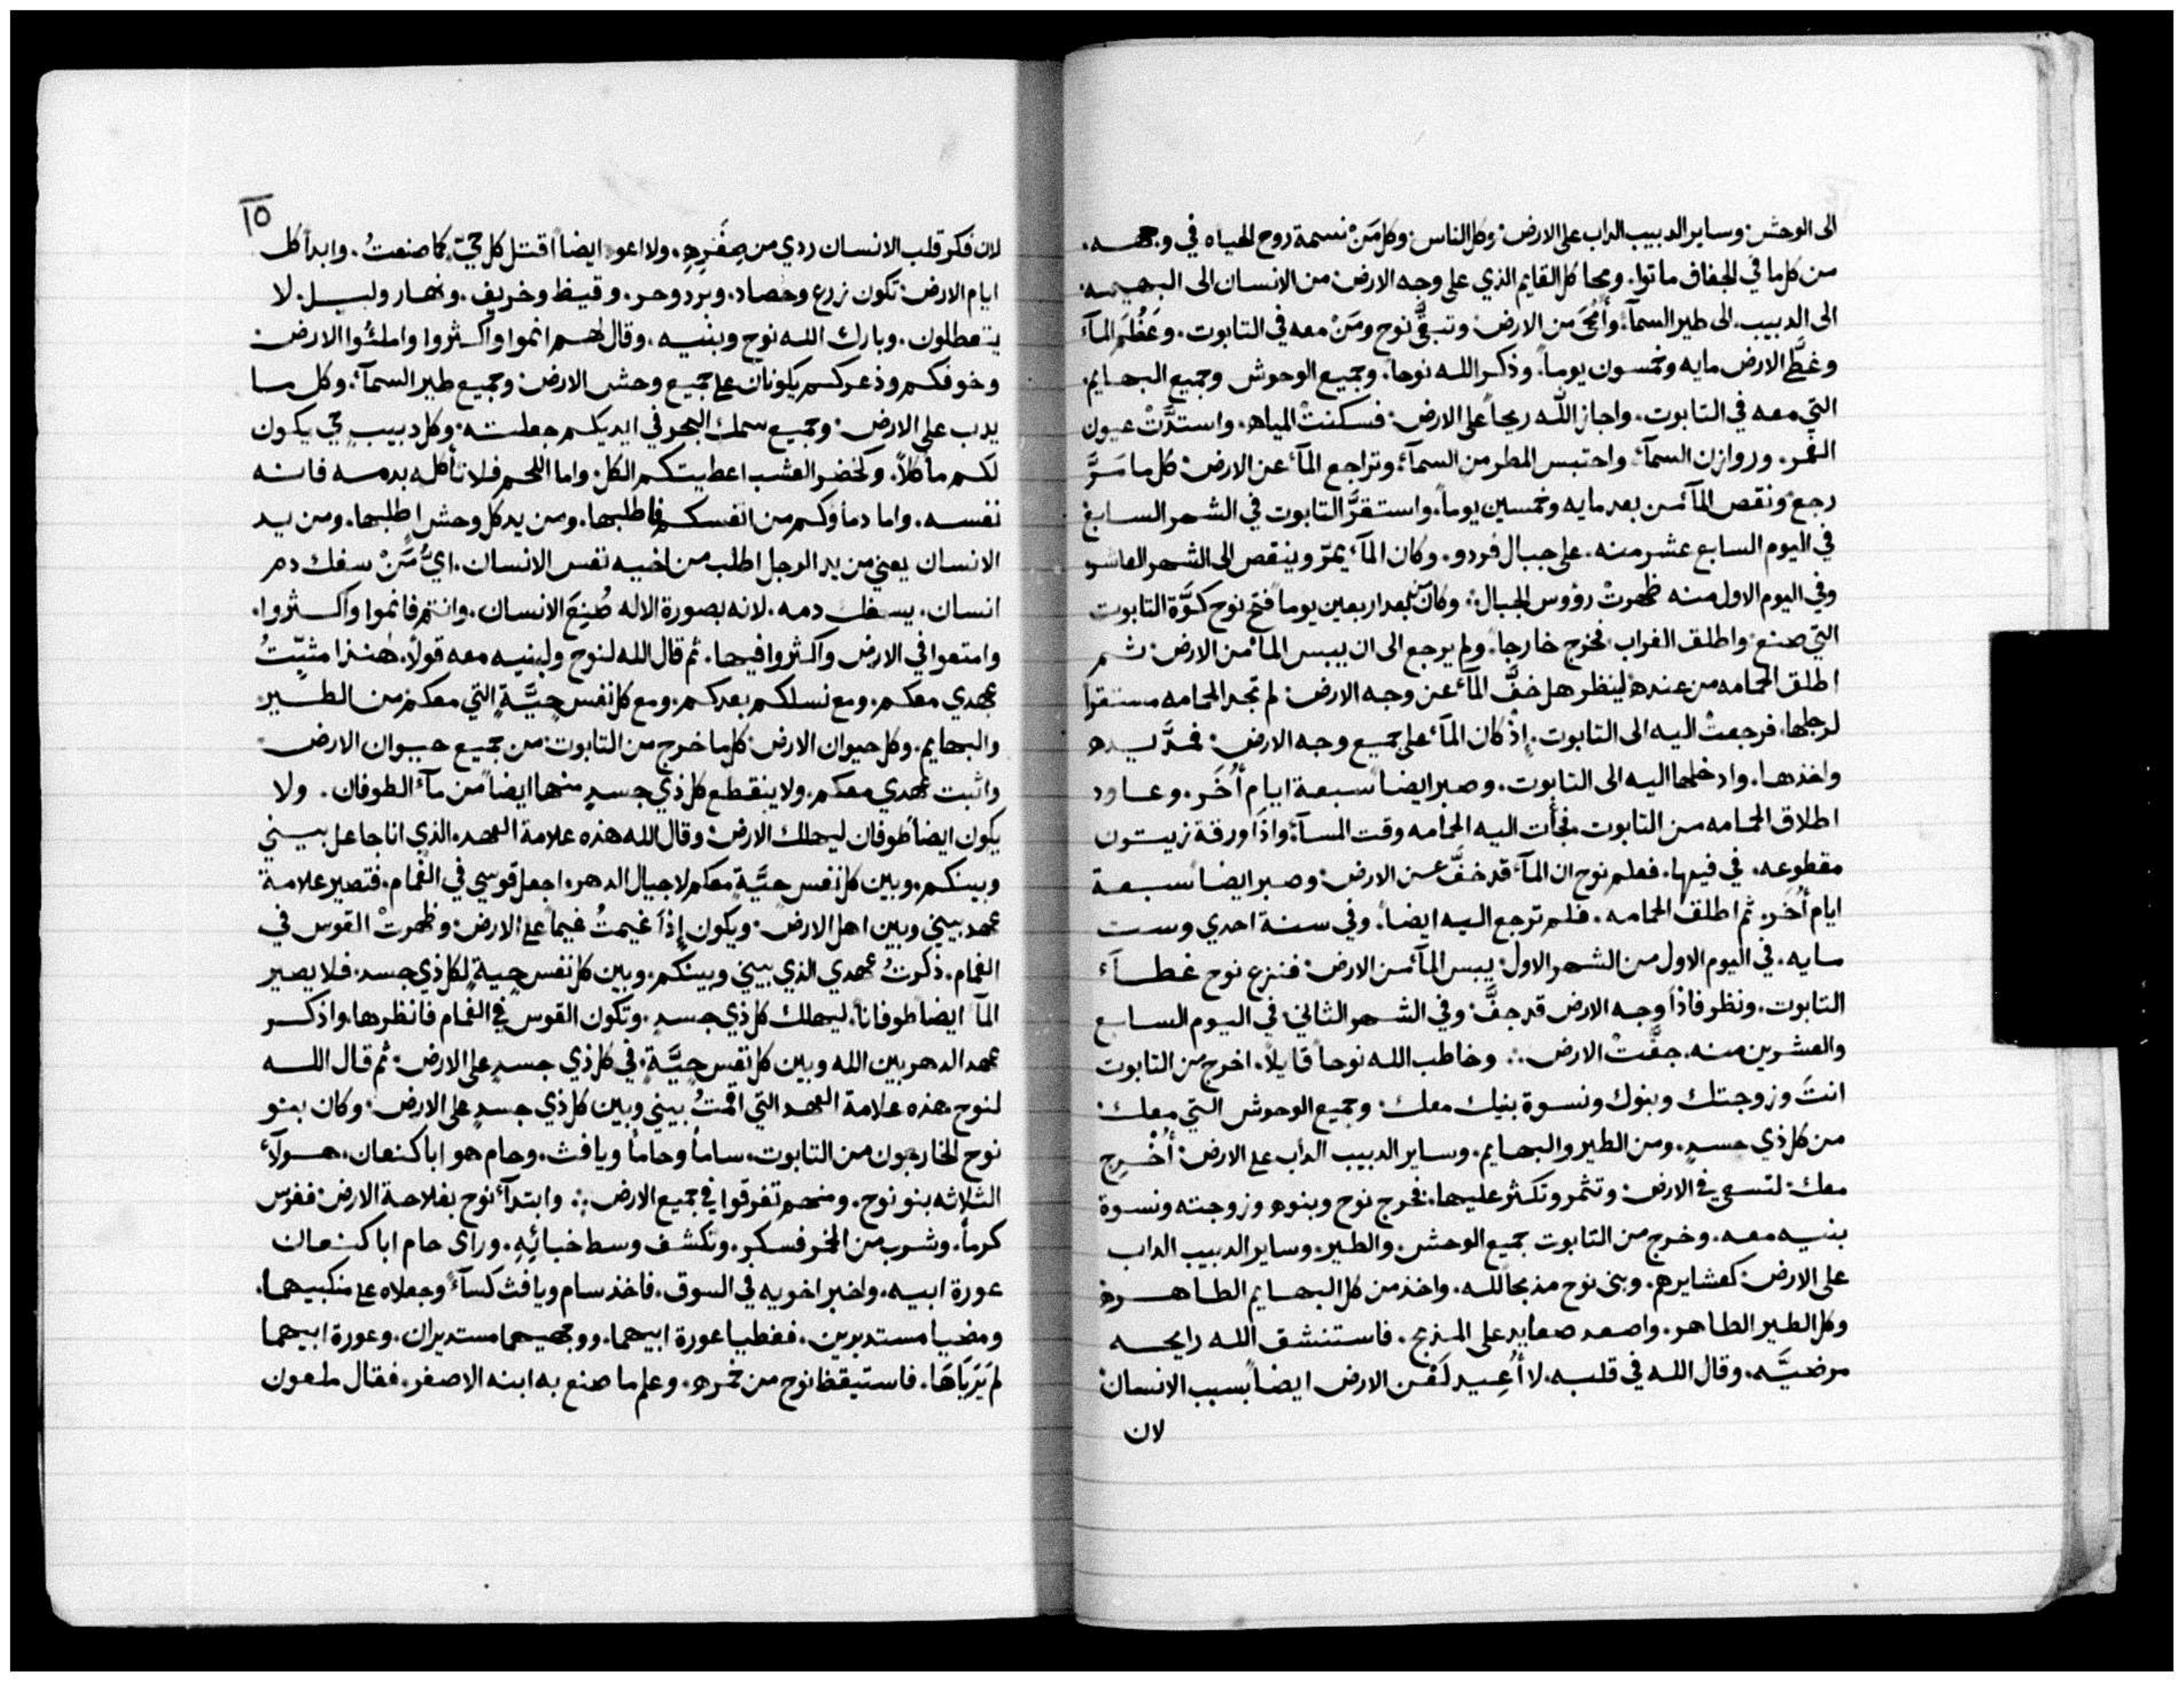 الى الوحش. وساير الدبيب الداب على الارض. وكل الناس. وكل مَنْ نسمة روح الحياه في وجهه.
من كل ما في الجفاف ماتوا. ومحا كل القايم الذي على وجه الارض. من الانسان الى البهيمه.
الى الدبيب. الى طير السمآء. وأمْحَى من الارض. وتبقَّى نوح ومَنْ معه في التابوت. وعَظُمَ المآء
وغطَّى الارض مايه وخمسون يوماً. وذكر الله نوحاً. وجميع الوحوش وجميع البهايم.
التي معه في التابوت. واجاز الله ريحاً على الارض. فسكنتْ المياه. واستدَّتْ عيون
الغمر. وروازن السمآء. واحتبس المطر من السمآء. وتراجع المآء عن الارض. كل ما مَرَّ
رجع. ونقص المآء من بعد مايه وخمسين يوماً. واستقرَّ التابوت في الشهر السابع
في اليوم السابع عشر منه. على جبال قردو. وكان المآء يمرّ وينقص الى الشهر العاشر
وفي اليوم الاول منه ظهرتْ رؤوس الجبال. وكان من بعد اربعين يوماً فتح نوح كوَّة التابوت
التي صنع. واطلق الغراب. فخرج خارجا. ولم يرجع الى ان ييبس المآء من الارض. ثم
اطلق الحمامه من عنده. لينظر هل خفَّ المآء عن وجه الارض. لم تجد الحمامه مستقراً
لرجلها. فرجعتْ اليه الى التابوت. إذْ كان المآء على جميع وجه الارض. فمدَّ يده
واخذها. وادخلها اليه الى التابوت. وصبر ايضاً سبعة ايام أُخَر. وعاود
اطلاق الحمامه من التابوت. فجأت اليه الحمامه وقت المسآء. واذا ورقة زيتون
مقطوعه. في فيها. فعلم نوح ان المآء قد خفَّ عن الارض. وصبر ايضاً سبعة
ايام أُخَر. ثم اطلق الحمامه. فلم ترجع اليه ايضاً. وفي سنة احدي وست
مايه. في اليوم الاول من الشهر الاول. يبس المآء من الارض. فنزع نوح غطآء
التابوت. ونظر فاذا وجه الارض قد جفَّ. وفي الشهر الثاني. في اليوم السابع
والعشرين منه. جفَّتْ الارض. وخاطب الله نوحاً قايلاً. اخرج من التابوت
انتَ وزوجتك وبنوك ونسوة بنيك معك. وجميع الوحوش التي معك.
من كل ذي جسدٍ. ومن الطير والبهايم. وساير الدبيب الداب على الارض. أَخْرِج
معك. لتسعى في الارض. وتثمر وتكثر عليها. فخرج نوح وبنوه وزوجته ونسوة
بنيه معه. وخرج من التابوت جميع الوحش. والطير. وساير الدبيب الداب
على الارض. كعشايرهم. وبنى نوح مذبحاً لله. واخذ من كل البهايم الطاهره
وكل الطير الطاهر. واصعد صعايد على المذبح. فاستنشق الله رايحه
مرضيَّه. وقال الله في قلبه. لا أُعِيد لَعْن الارض ايضاً بسبب الانسان.
لان
١٥
لان فكر قلب الانسان ردي من صِغَرِهِ. ولا اعود ايضاً اقتل كل حيّ كما صنعتُ. وابداً كل
ايام الارض. تكون زرع وحصاد. وبرد وحر. وقيظ وخريف. ونهار وليل. لا
يتعطلون. وبارك الله نوح وبنيه. وقال لهم انموا واكثروا واملئُوا الارض.
وخوفكم وذعركم يكونان على جميع وحش الارض. وجميع طير السمآء. وكل ما
يدب على الارض. وجميع سمك البحر في ايديكم جعلته. وكل دبيبٍ حي يكون
لكم مأكلاً. وكخضر العشب اعطيتكم الكل. واما اللحم فلا تأكله بدمه فانه
نفسه. واما دمأوكم من انفسكم فاطلبها. ومن يد كل وحشٍ اطلبها. ومن يد
الانسان يعني من يد الرجل اطلب من اخيه نفس الانسان. ايُّ مَنْ سفك دم
انسان. يسفك دمه. لانه بصورة الاله صُنِعَ الانسان. وانتم فانموا واكثروا.
وامتعوا في الارض واكثروا فيها. ثم قال الله لنوح ولبنيه معه قولاً. هنذا مثبّتُ
عهدي معكم. ومع نسلكم بعدكم. ومع كل نفس حيَّةٍ التي معكم من الطير
والبهايم. وكل حيوان الارض. كل ما خرج من التابوت. من جميع حيوان الارض
واثبت عهدي معكم. ولا ينقطع كل ذي جسدٍ منها ايضاً من مآء الطوفان. ولا
يكون ايضاً طوفان ليهلك الارض. وقال الله هذه علامة العهد. الذي انا جاعل بيني
وبينكم. وبين كل نفس حيَّةٍ معكم لاجيال الدهر. اجعل قوسي في الغمام. فتصير علامة
عهد بيني وبين اهل الارض. ويكون إذا غيمتُ غيماً على الارض. وظهرتْ القوس في
الغمام. ذكرتُ عهدي الذي بيني وبينكم. وبين كل نفس حيةٍ لكل ذي جسد. فلا يصير
المآ ايضاً طوفاناً. ليهلك كل ذي جسدٍ. وتكون القوس في الغمام فانظرها. واذكر
عهد الدهر بين الله وبين كل نفس حيَّةٍ. في كل ذي جسدٍ على الارض. ثم قال الله
لنوح. هذه علامة العهد التي اقمتُ بيني وبين كل ذي جسدٍ على الارض. وكان بنو
نوح الخارجون من التابوت. ساماً وحاماً ويافث. وحام هو ابا كنعان. هولآء
الثلاثه بنو نوح. ومنهم تفرقوا في جميع الارض. وابتدآء نوح بفلاحة الارض. فغرس
كرماً. وشرب من الخمر فسكر. وتكشف وسط خبائِهِ. وراى حام ابا كنعان
عورة ابيه. واخبر اخويه في السوق. فاخذ سام ويافث كسآءً وجعلاه على منكبيهما.
ومضيا مستدبرين. فغطيا عورة ابيهما. ووجهيهما مستديران. وعورة ابيهما
لم يَرَيَاهَا. فاستيقظ نوح من خمره. وعلم ما صنع به ابنه الاصغر. فقال ملعون